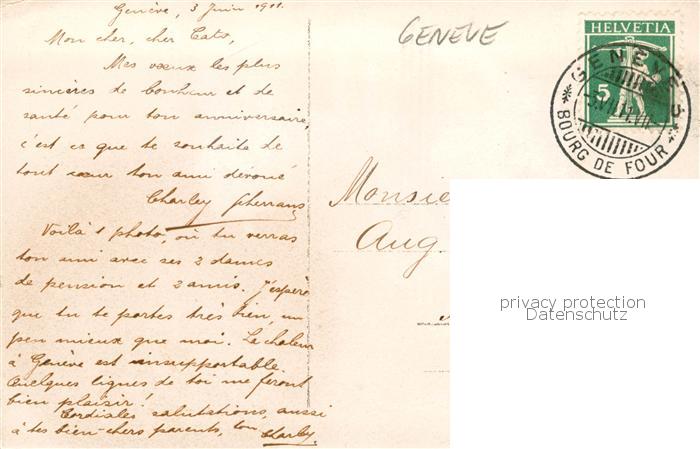 Genève, 3 Juin 1911.
Mon cher, cher Cato,
Mes vœux les plus
sinières de bonheur et de
santé pour ton anniversaire,
c'est ce que te souhaite de
tout cœur ton ami dévoué
Charley
Voilà 1 photo, où tu verras
ton ami avec ses 2 dames
de pension et 2 amis. J'espère
que tu te portes très bien, un
peu mieux que moi. La chaleur
à Genève est insupportable.
Quelques lignes de toi me feront
bien plaisir!
Cordiales salutations, aussi
à tes bien-chers parents, ton
Charley.
GENEVE
HELVETIA
5
GENEVE 3
BOURG DE FOUR
Monsie
Aug.
privacy protection
Datenschutz